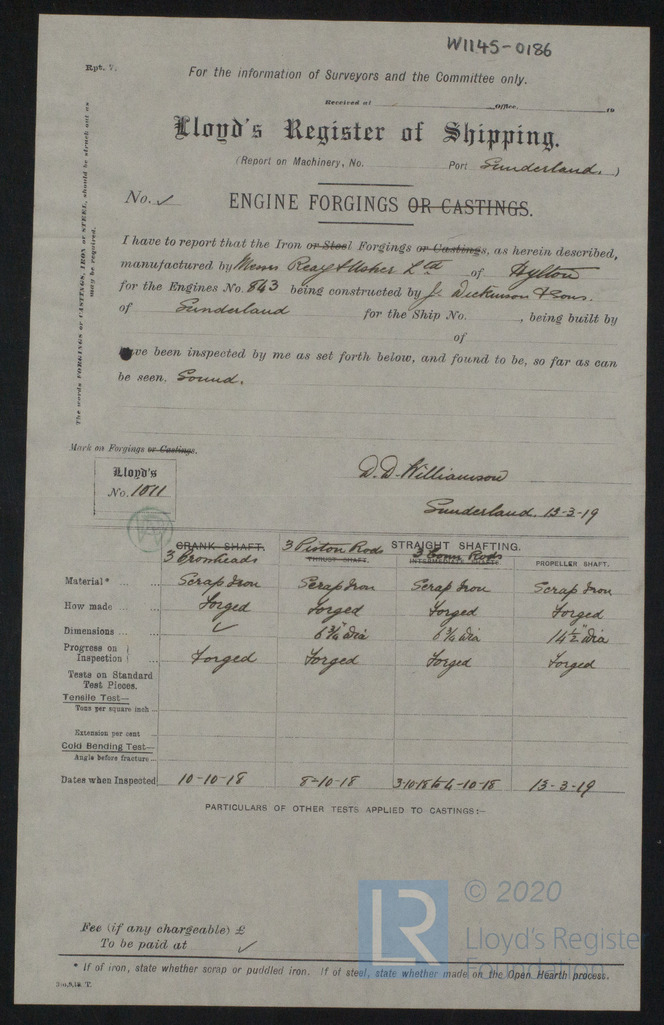 W1145-0186
Rpt. 7.
For the information of Surveyors and the Committee only.
Received at Office, 19
Lloyd's Register of Shipping.
(Report on Machinery, No. Port Sunderland.)
No. ✓ ENGINE FORGINGS OR CASTINGS.
The words FORGINGS or CASTINGS, IRON or STEEL, should be struck out as
may be required.
I have to report that the Iron or Steel Forgings or Castings, as herein described,
manufactured by Messrs Reay & Usher Ltd of Hylton
for the Engines No. 843 being constructed by J. Dickinson & Sons.
of Sunderland for the Ship No. , being built by
of
have been inspected by me as set forth below, and found to be, so far as can
be seen. Sound.
Mark on Forgings or Castings.
Lloyd's
No. 1011
D. D. Williamson
Sunderland. 13-3-19
CRANK SHAFT. 3 Piston Rods STRAIGHT SHAFTING. 3 Conn Rods
3 Crossheads THRUST SHAFT. INTERMEDIATE SHAFT. PROPELLER SHAFT.
Material* ... ... Scrap Iron Scrap Iron Scrap Iron Scrap Iron
How made ... ... Forged Forged Forged Forged
Dimensions ... ... ✓ 6¾" dia 6¾ dia 14½" dia
Progress on
Inspection ... Forged Forged Forged Forged
Tests on Standard
Test Pieces.
Tensile Test—
Tons per square inch ...
Extension per cent ...
Cold Bending Test—
Angle before fracture ...
Dates when Inspected 10-10-18 8-10-18 3-10-18 to 4-10-18 13-3-19
PARTICULARS OF OTHER TESTS APPLIED TO CASTINGS:—
Fee (if any chargeable) £
To be paid at ✓
* If of iron, state whether scrap or puddled iron. If of steel, state whether made on the Open Hearth process.
LR © 2020
Lloyd's Register
Foundation